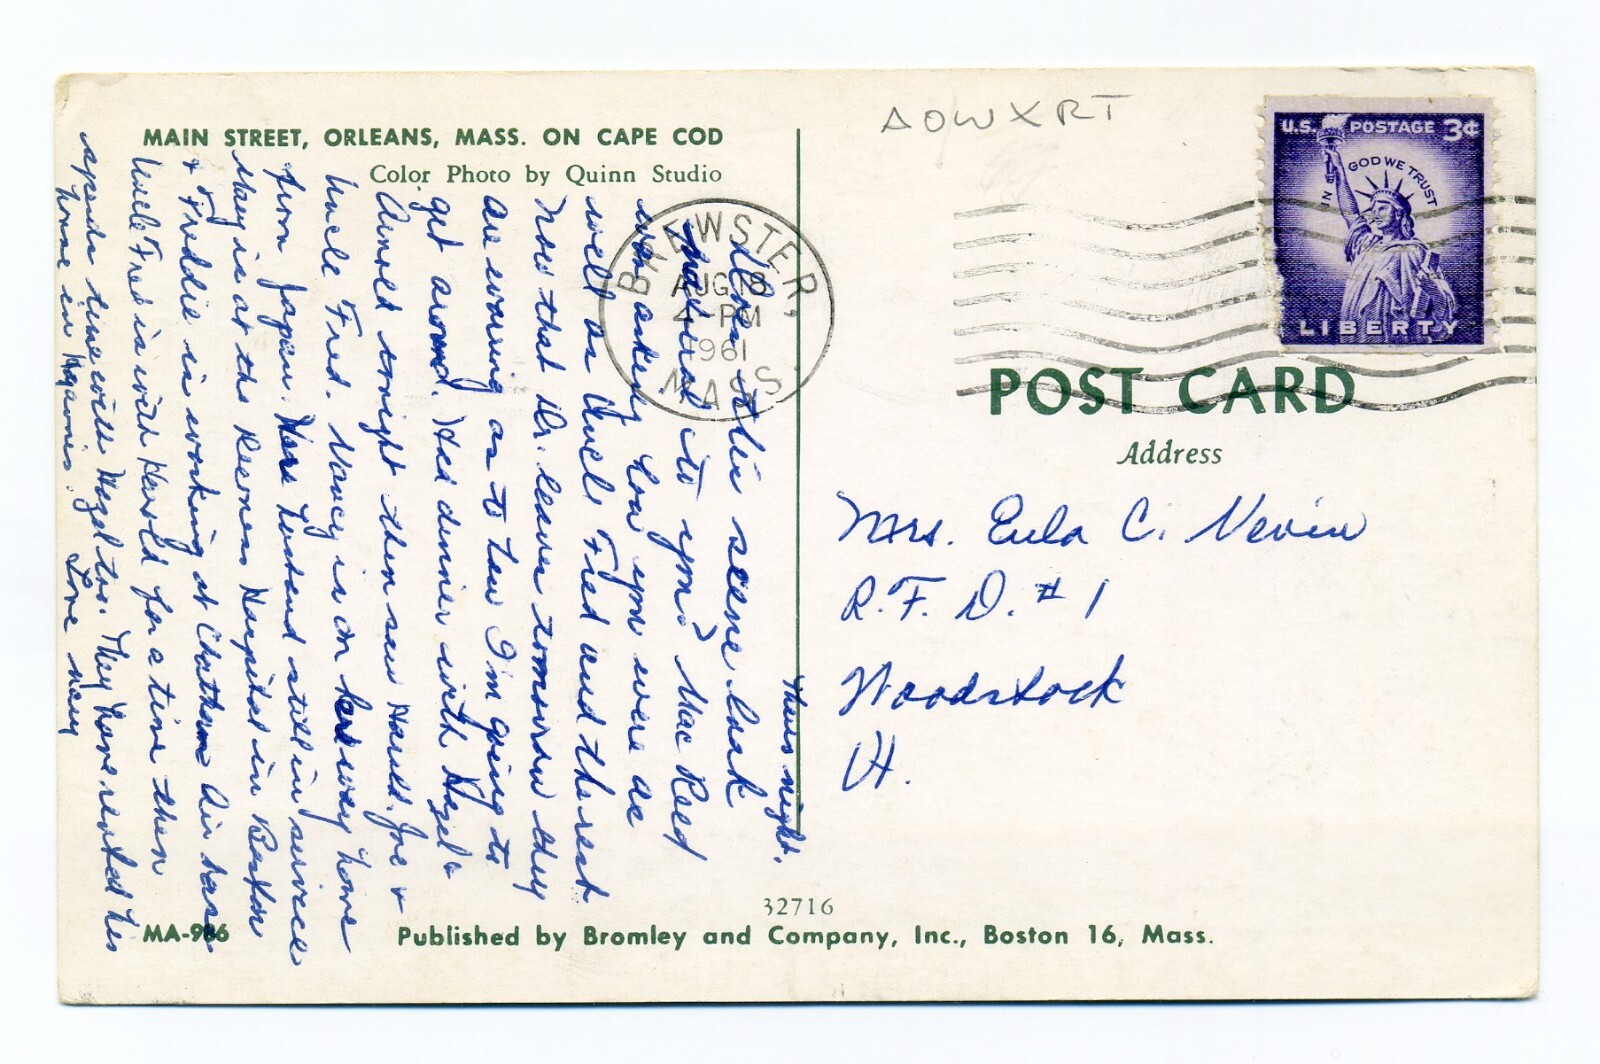 MAIN STREET, ORLEANS, MASS. ON CAPE COD
Color Photo by Quinn Studio
Thurs. night.
Does this scene look
to you? Mac Reed
was asking how you were as
well as Uncle Fred and the rest
Now that Dr. leaves tomorrow they
are worrying as to how I'm going to
get around. Had dinner with Hazel &
Arnold tonight then saw Harold, Joe &
Uncle Fred. Nancy is on her way home
from Japan. Her husband still in service
Mary is at the Deaconess Hospital in Boston
& Freddie is working at Chatham Air base
Uncle Fred is with Harold for a time then
spends time with Hazel too. They have rented his
home in Hyannis. Love
MA-986
AOWXRT
U.S. POSTAGE 3¢
IN GOD WE TRUST
LIBERTY
BREWSTER,
AUG 18
4 PM
1961
MASS.
POST CARD
Address
Mrs. Eula C. Nevin
R.F.D. #1
Woodstock
Vt.
32716
Published by Bromley and Company, Inc., Boston 16, Mass.